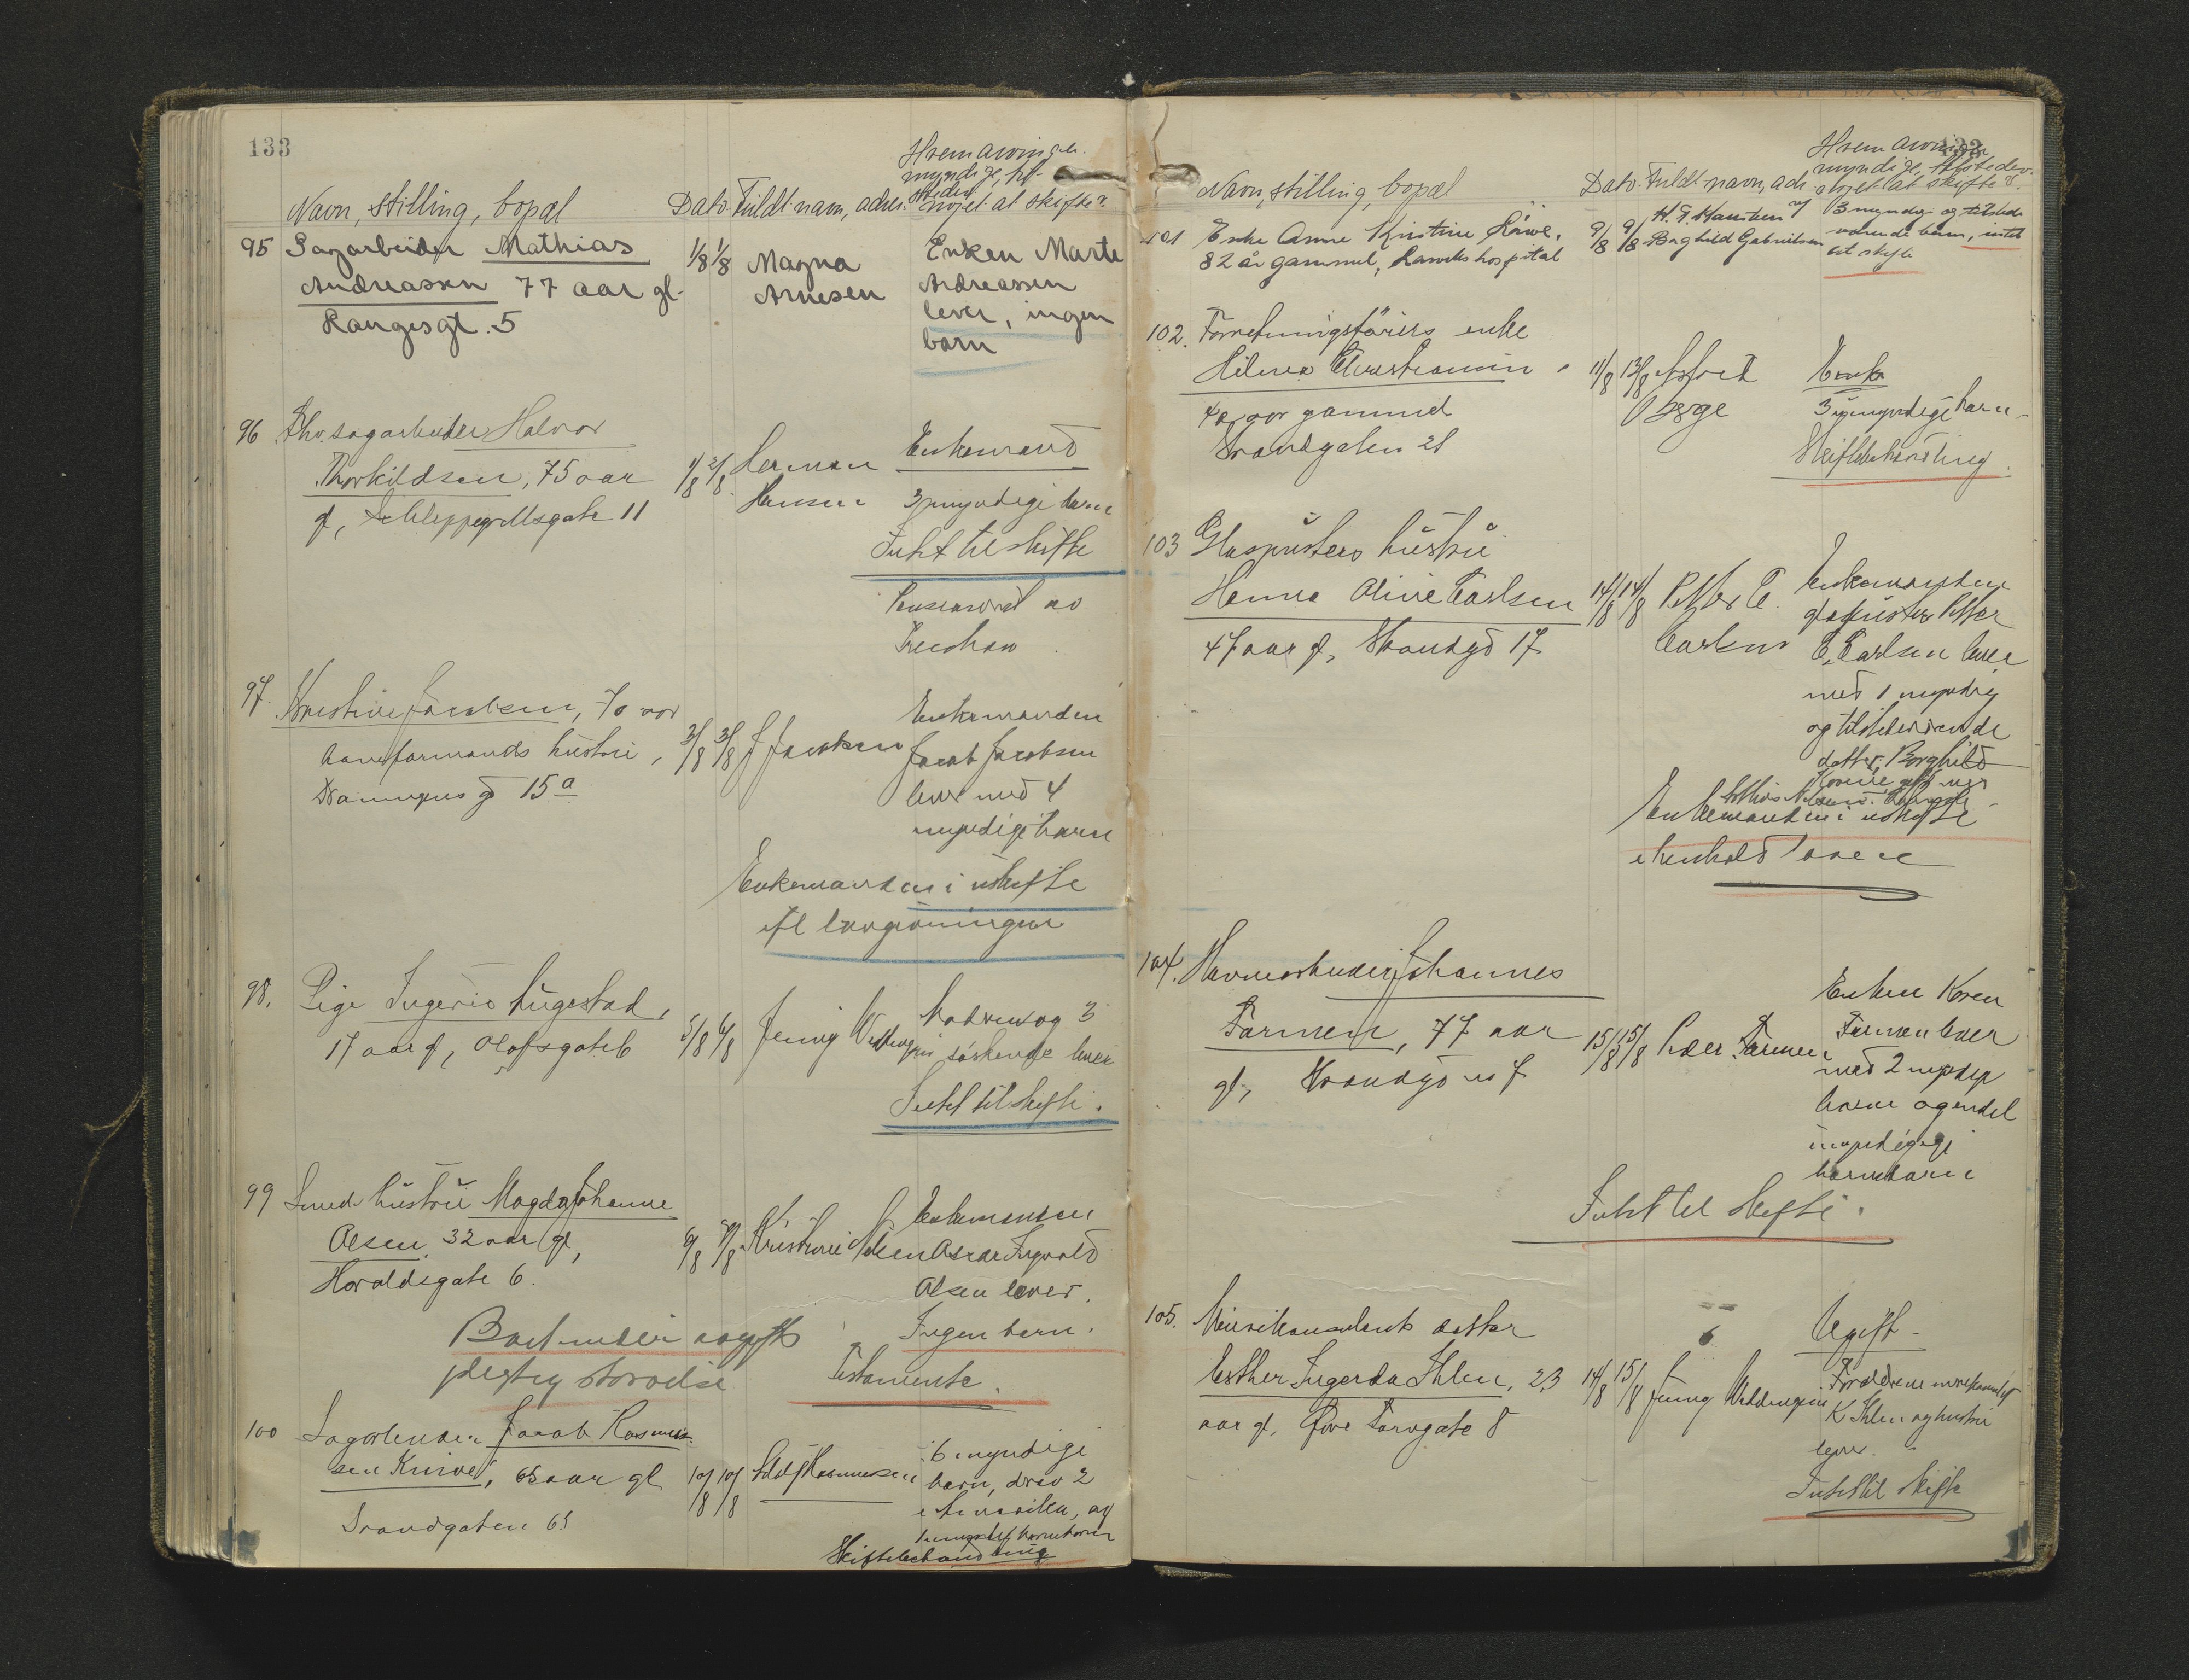 133
Navn, stilling, bopæl
Dato. Fuldt navn, adres.
Hvem arvinger.
myndige, til-
steder.
noget at skifte?
95 Sagarbeider Mathias
Andreassen 77 aar gl.
Kongesgt. 5
1/8 1/8 Magna
Arnesen
Enken Marte
Andreassen
lever, ingen
barn
96 Fhv. sagarbeider Halvor
Thorkildsen, 75 aar
gl, Schleppegrellsgate 11
1/8 2/8 Herman
Hansen
Enkemand
3 myndige barn
Intet til skifte
97. Kristine Jacobsen, 70 aar
havnformands hustru,
Dronningens g 15a
3/8 3/8 J Jacobsen
Enkemanden
Jacob Jacobsen
lever med 4
myndige barn
Enkemanden i uskifte
98. Pige Ingerid Lugestad,
17 aar gl, Olafsgate 6
5/8 6/8 Jenny Weddingen
Moderen og 3
søskende lever
Intet til skifte.
99 Smed hustru Magda Johanne
Olsen, 32 aar gl,
Haraldsgate 6.
6/8 7/8 Kristine Nilsen
Enkemanden
Oscar Ingvald
Olsen lever.
Ingen barn.
Testamente.
100 Sagarbeider Jacob Rasmus-
sen Knive, 65 aar gl
Strandgaten 65
10/8 10/8 Adolf Rasmussen
6 myndige
barn, derav 2
i Amerika, og
Skiftebehandling
Navn, stilling, bopæl
Dato. Fuldt navn, adr.
Hvem arvinger
myndige, tilsteder.
noget at skifte?
101 Enke Anne Kristine Løiwe,
82 år gammel, Landshospital
9/8 9/8 H. F. Hansen v/
Borghild Gabrielsen
3 myndige og tilstede
værende barn, intet
at skifte
102. Forretningsførers enke
Hilma Christiansen
42 aar gammel
Strandgaten 21
11/8 13/8 Asfrid
Berge
Enke
3 umyndige barn -
Skiftebehandling.
103 Glaspusters hustru
Hanna Oline Carlsen
47 aar gl, Strandgd 17
14/8 14/8 Petter C.
Carlsen
Enkemanden
glaspuster Petter
C. Carlsen lever
med 1 myndig
og tilstedeværende
datter, Borghild
Enkemanden i uskifte
i henhold loven
104. Havnearbeider Johannes
Farmen, 77 aar
gl, Strandgd no 7
15/8 15/8 Peder Farmen
Enken Karen
Farmen lever
med 2 myndige
barn og endel
umyndige
barnebarn
Intet til skifte.
105. Meierikonsulents datter
Esther Ingerda Ihlen, 23
aar gl, Øvre Torvgate 8
14/8 15/8 Jenny Weddingen
Ugift -
Forældrene meierikonsulent
K Ihlen og hustru
lever.
Intet til skifte